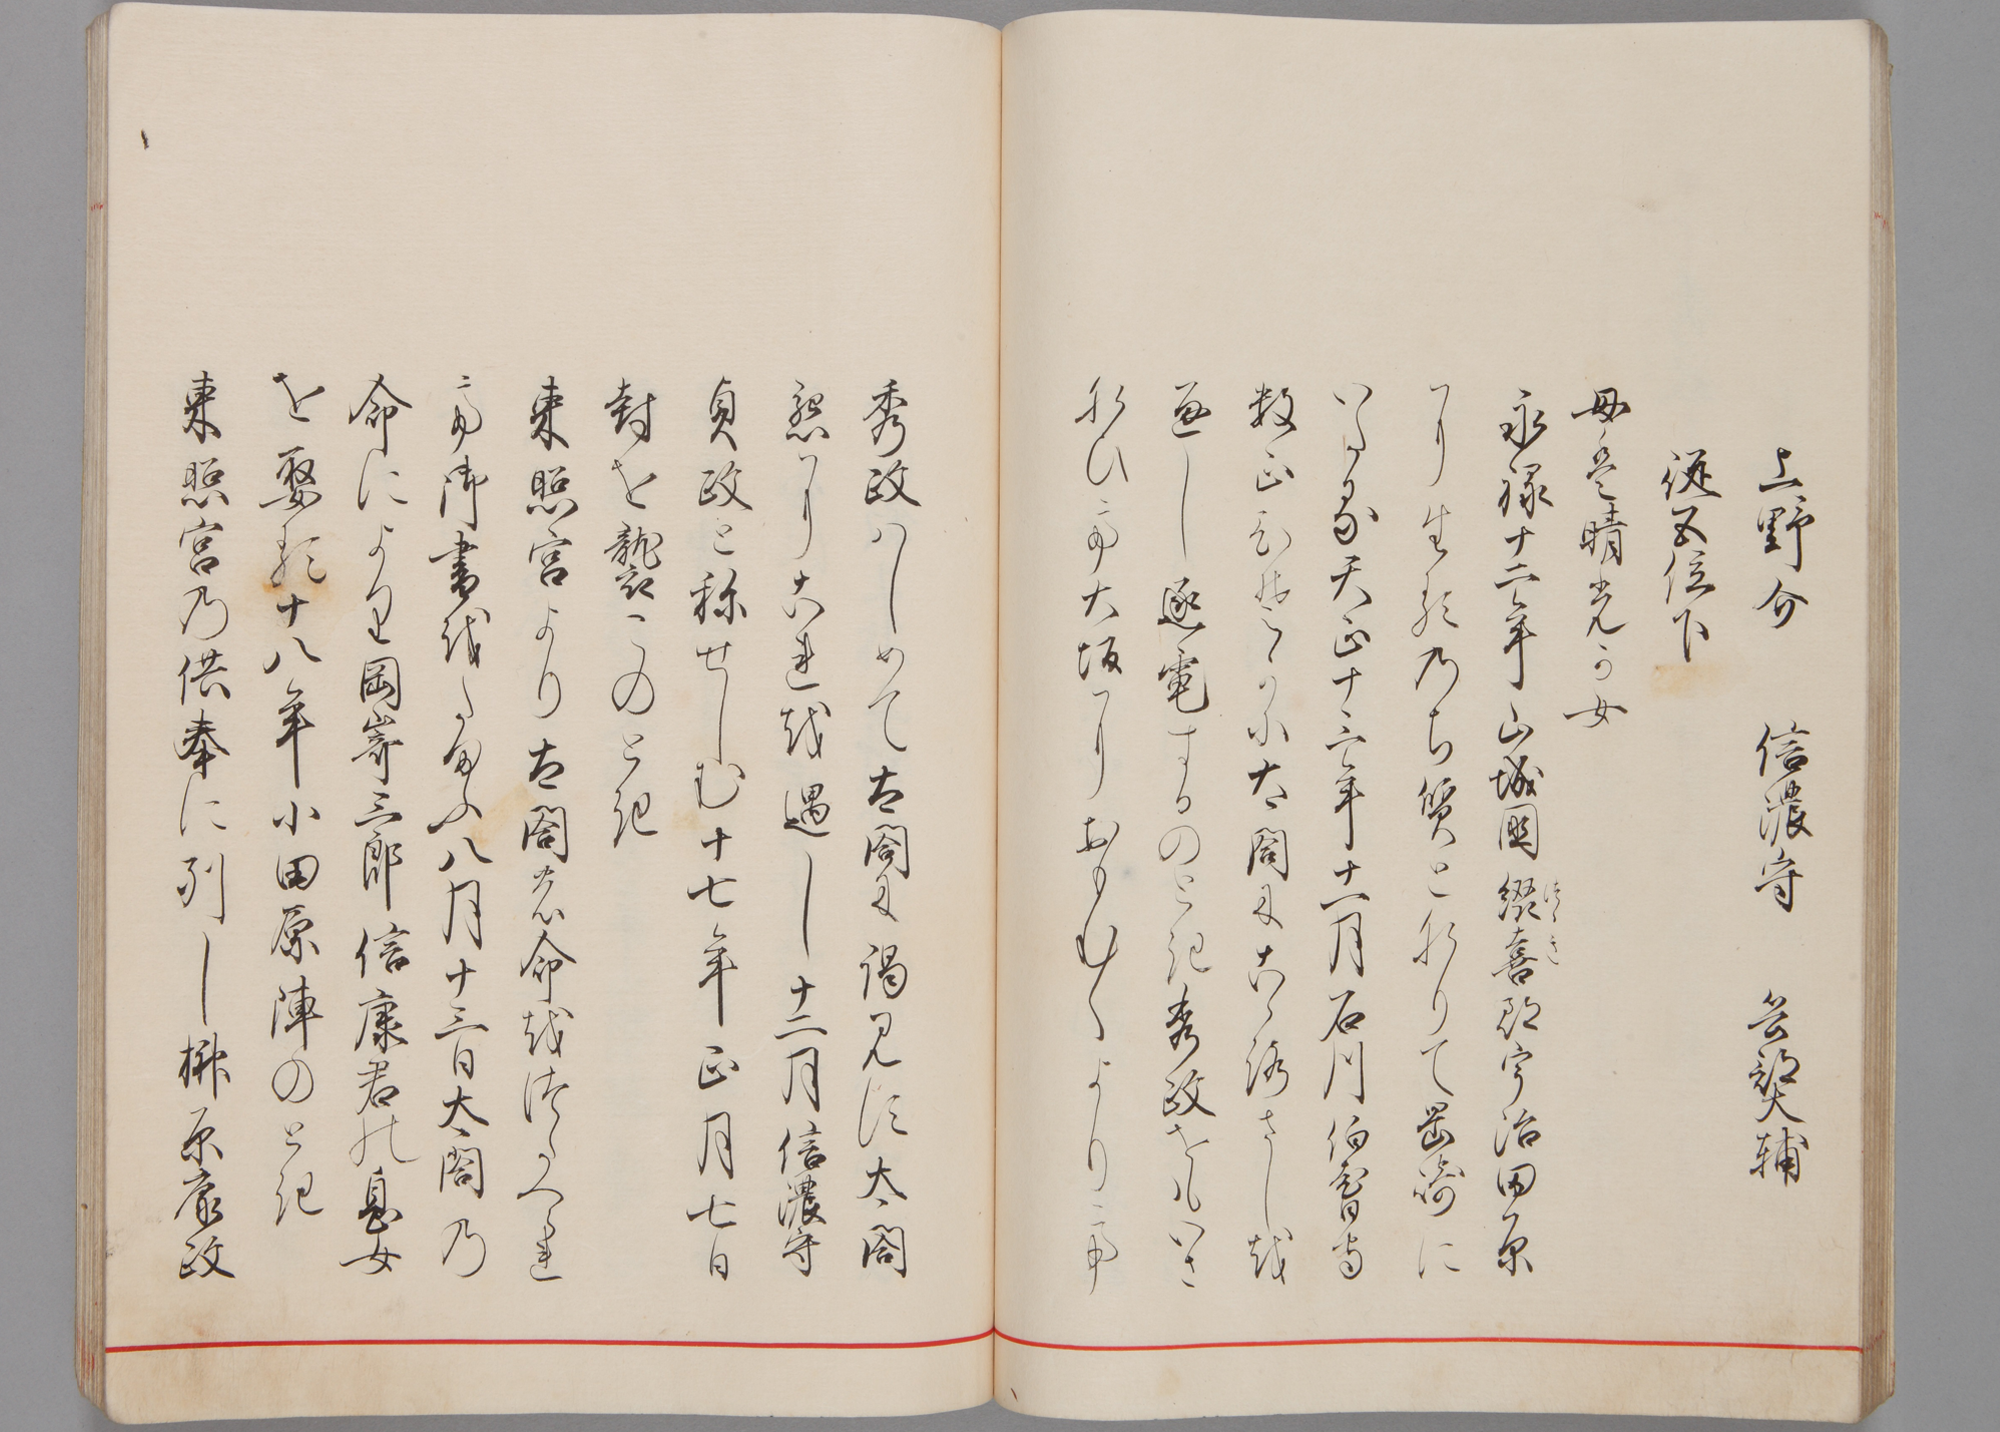 上野介　信濃守　兵部大輔
従五位下
母は晴光か女
永禄十二年山城國綴喜郡宇治田原
に生るのち質となりて岡崎に
いたる天正十三年十一月石川伯耆守
数正ひそかに太閤にこゝろさしを
通し逐電するのとき秀政をもいさ
なひて大坂におもむくよりて
秀政はしめて太閤に謁見す太閤
懇にこれを遇し十二月信濃守
貞政と称せしむ十七年正月七日
封を襲このとき
東照宮より太閤の命をつたへられ
て御書をたまふ八月十三日太閤乃
命により岡嵜三郎信康君の息女
を娶る十八年小田原陣のとき
東照宮乃供奉に列し榊原康政